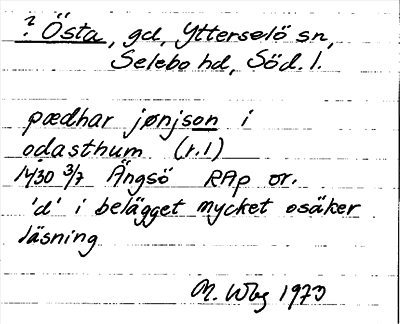 ? Östa, gd, Ytterselö sn,
Selebo hd, Söd. l.
pædhar jønjson i
odasthum (r. 1)
1430 3/7 Ängsö RAp or.
'd' i belägget mycket osäker
läsning
M. Wbg 1970